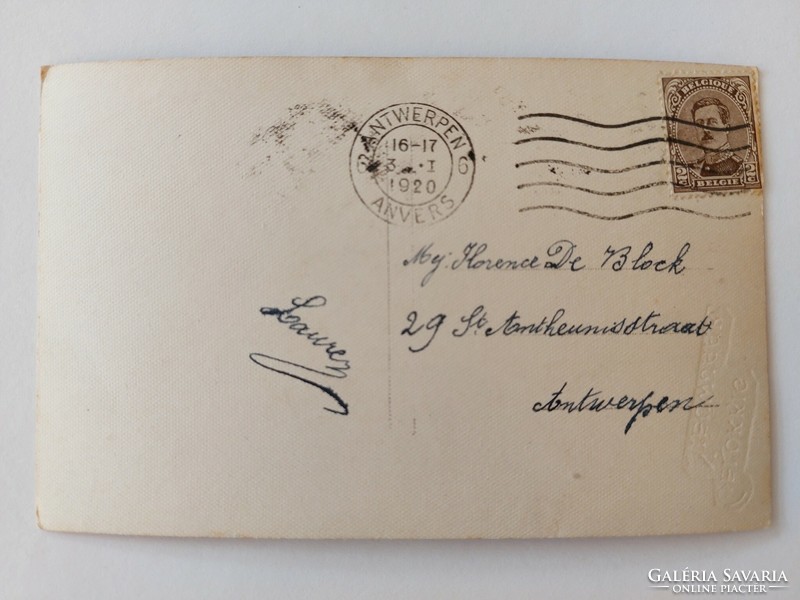 ANTWERPEN
6 6
16-17
3 I
1920
ANVERS
BELGIQUE
2 2
BELGIË
Mej. Florence De Block
29 St. Antheunisstraat
Antwerpen
GALÉRIA SAVARIA
ONLINE PIACTÉR